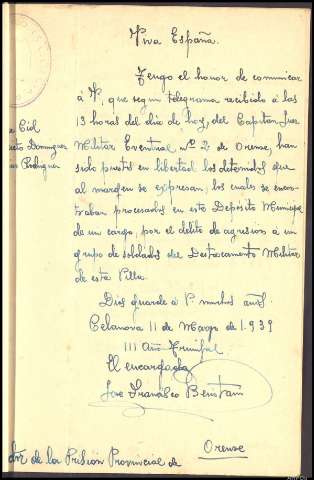 Viva España.
Tengo el honor de comunicar
á V, que segun telegrama recibido á las
13 horas del dia de hoy, del Capitan Juez
Militar Eventual Nº 2 de Orense, han
sido puestos en libertad los detenidos que
al margen se expresan, los cuales se encon
traban procesados en este Deposito Municipal
de mi cargo, por el delito de agresion á un
grupo de soldados del Destacamento Militar
de esta Villa.
Cid
Dominguez
Rodriguez
Dios guarde á V. muchos años.
Celanova 11 de Marzo de 1.939
III Año Triunfal
El encargado
Jose Francisco
de la Prision Provincial de
Orense